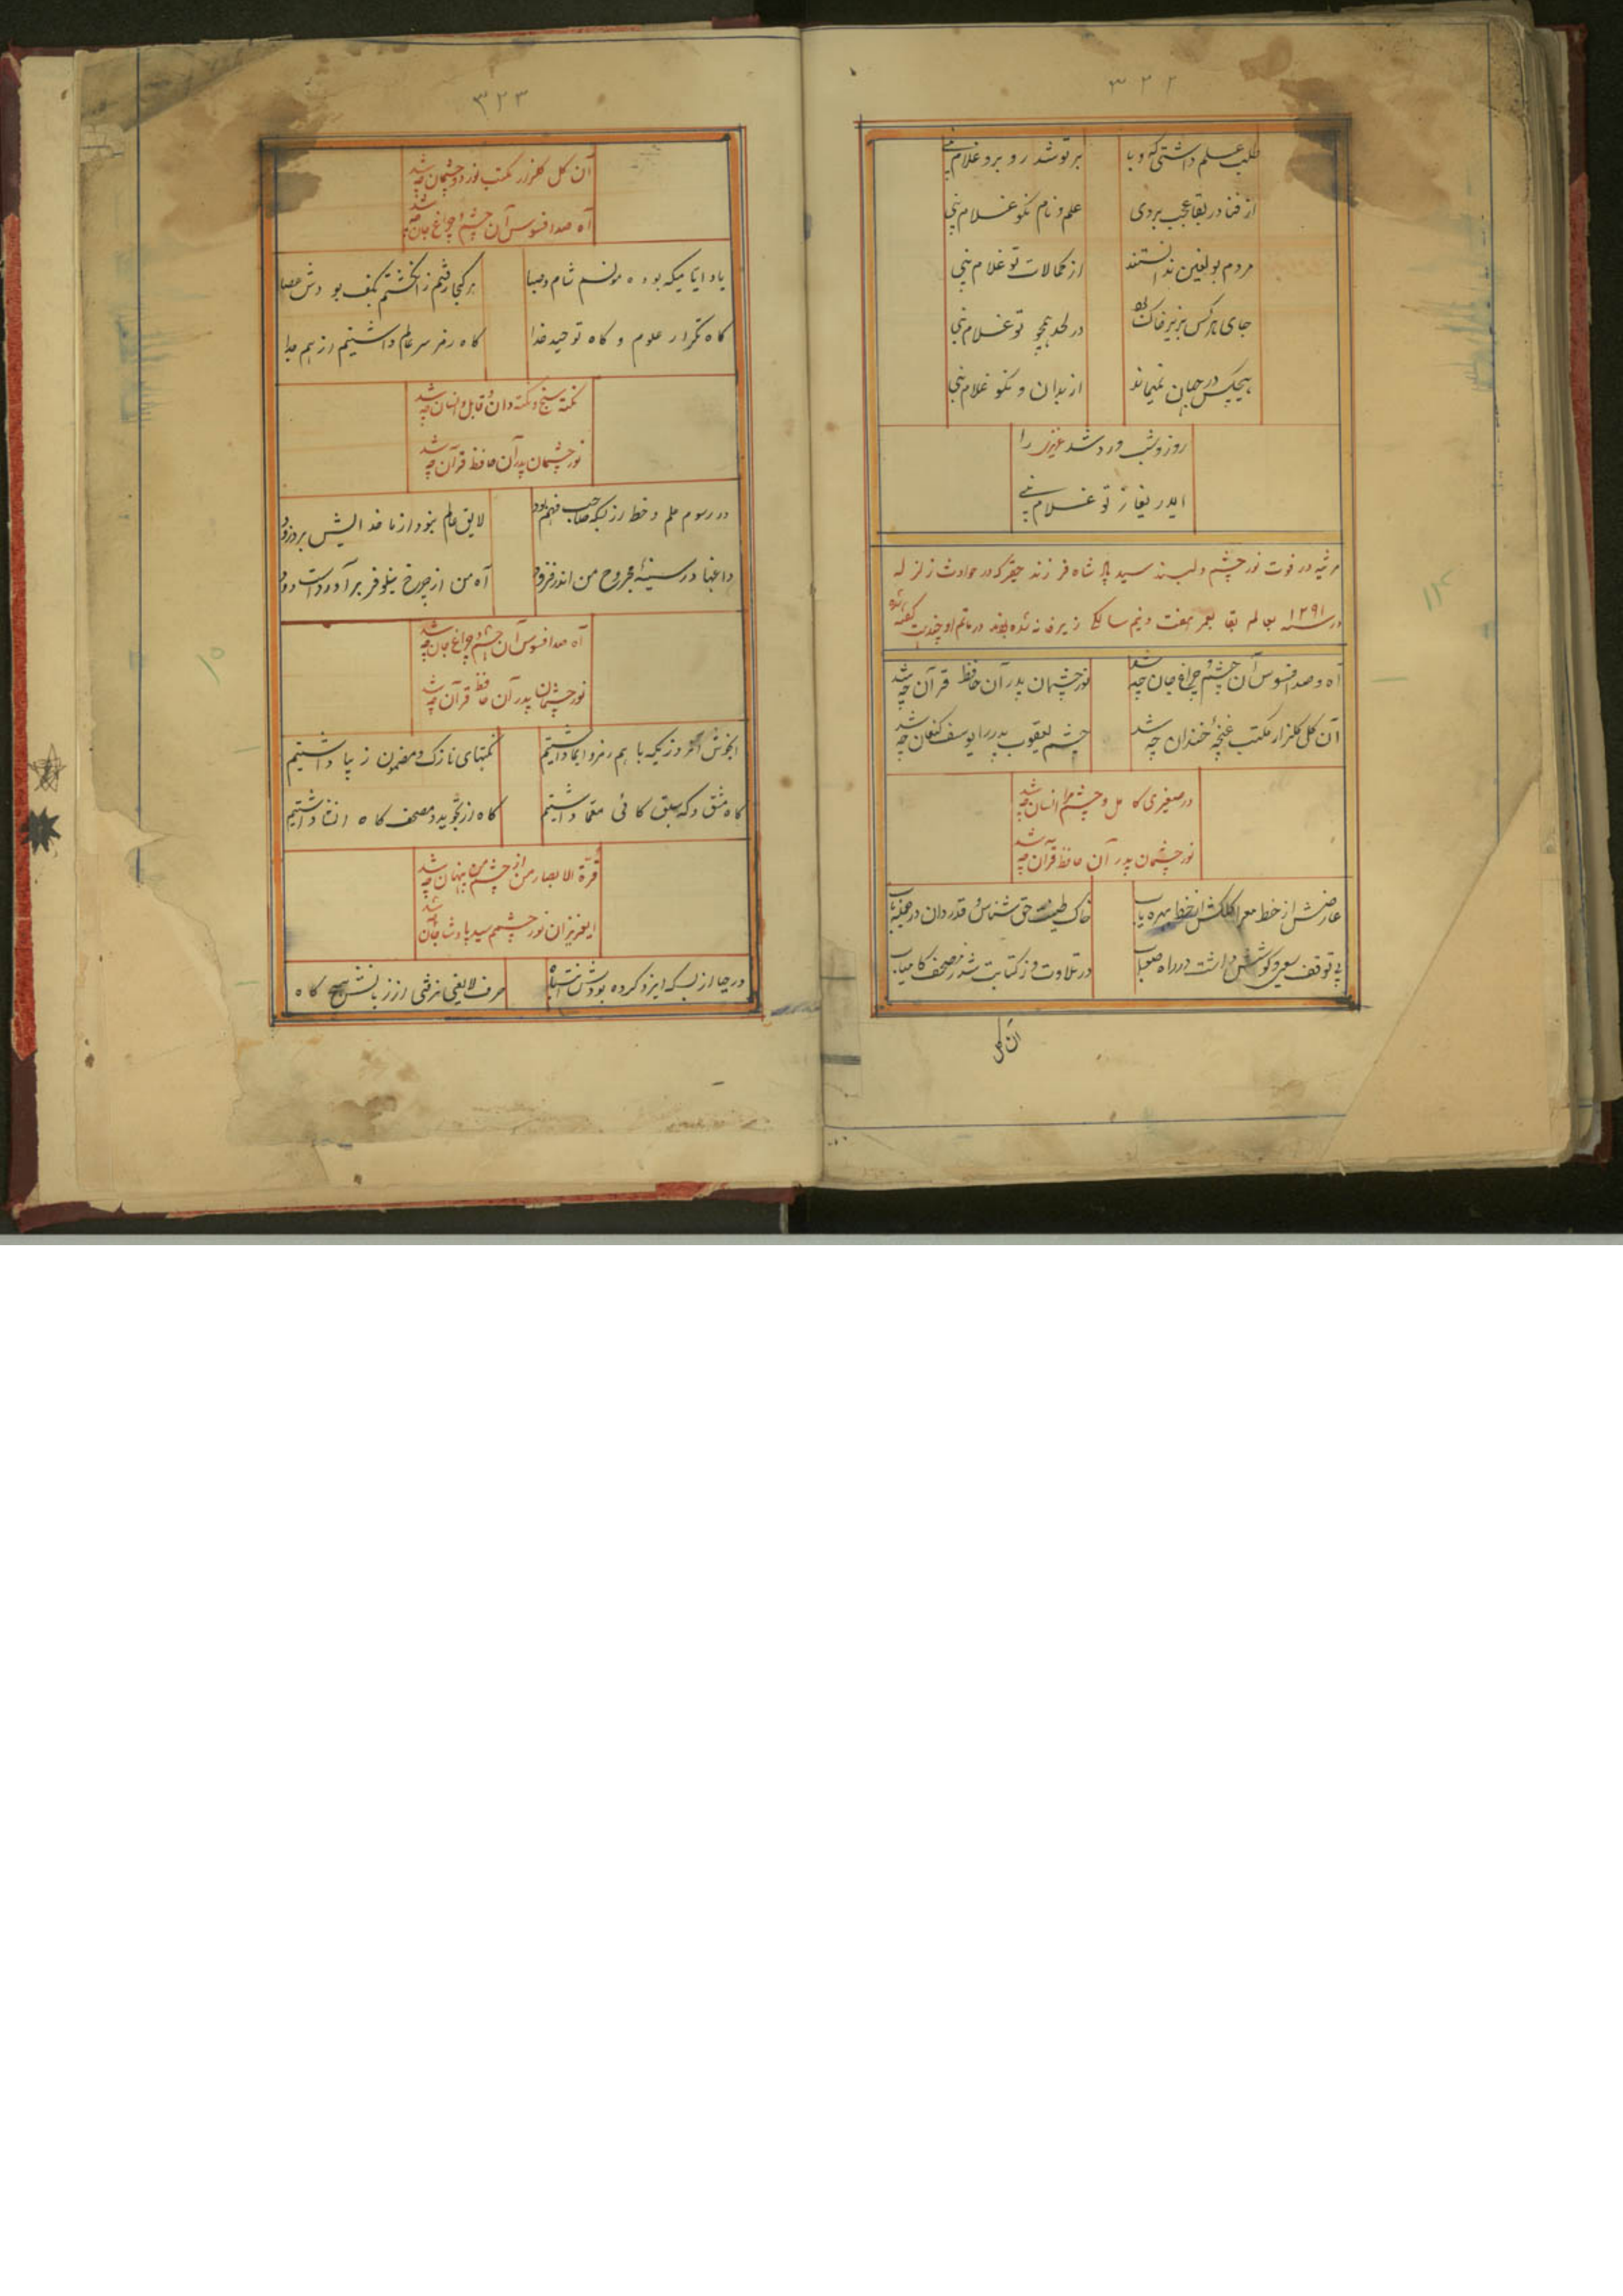 ٣٢٢
طلب علم داشتی که و با
بر تو شد رو برو غلام نبی
از فنا در بقا عجب بردی
علم و نام نکو غلام نبی
مردم بولغین ندانستند
از کمالات تو غلام نبی
جای هرکس بزیر خاک
در لحد همچو تو غلام نبی
هیچکس در جهان نمیماند
از بدان و نکو غلام نبی
روز و شب ورد شد عزیزی را
ایدریغا ز تو غلام نبی
مرثیه در فوت نور چشم دلبند سید پاشاه فرزند حقیر که در حوادث زلزله
در سنه ١٢٩١ بعالم بقا بعمر هفت و نیم سالگی زیر خانه شده در ماتم او چند بیت گفته شده
آه و صد افسوس آن چشم و چراغ جان چه شد
نور چشمان پدر آن حافظ قرآن چه شد
آن گل گلزار مکتب غنچهٔ خندان چه شد
چشم یعقوب پدر را یوسف کنعان چه شد
در صغیری کامل و چشم مرا انسان چه شد
نور چشمان پدر آن حافظ قرآن چه شد
عارضش از خط معرا کلکش از خط بهره یاب
خاک طینت حق شناس و قدردان در
بی توقف سعی و کوشش داشت در راه صواب
در تلاوت وز کتابت شد ز مصحف کامیاب
آن گل
٣٢٣
آن گل گلزار مکتب نور دو چشمان چه شد
آه صد افسوس آن چشم و چراغ جان چه شد
یاد ایامیکه بوده مونسم شام و صبا
هر کجا رفتم ز انگشتم بکف بودش عصا
گاه تکرار علوم و گاه توحید خدا
گاه رمز سر عالم داشتیم از هم جدا
نکته سنج و نکته دان و قابل و انسان چه شد
نور چشمان پدر آن حافظ قرآن چه شد
در رسوم علم و خط از بسکه صاحب فهم بود
لایق عالم نبود از ما خدایش بر ربود
داغها در سینهٔ مجروح من اندر فزود
آه من از چرخ نیلوفر برآورده است دود
آه صد افسوس آن چشم و چراغ جان چه شد
نور چشمان پدر آن حافظ قرآن چه شد
ایخوش آنروزیکه با هم رمز و ایما داشتیم
نکتهای نازک و مضمون زیبا داشتیم
گاه مشق و گه سبق گاهی معما داشتیم
گاه از تجوید و مصحف گاه انشا داشتیم
قرة الابصار من از چشم من پنهان چه شد
ایعزیزان نور چشمم سید پادشاجان چه شد
در حیا از بسکه ایزد کرده بودش انتباه
حرف لایعنی نرفتی از زبانش هیچ گاه